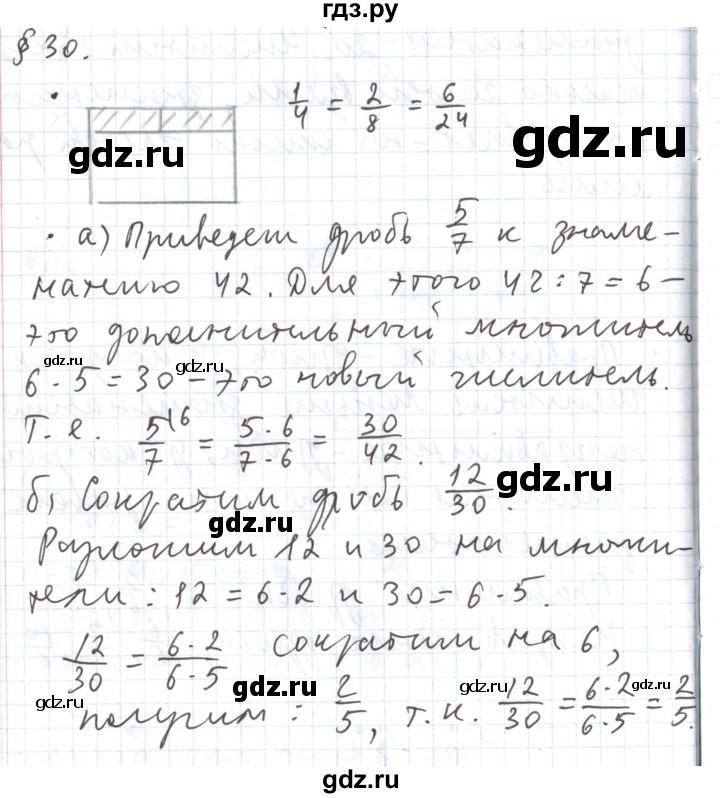 гдз.ру
§ 30.
1/4 = 2/8 = 6/24
gdz.ru
gdz.ru
gdz.ru
· а) Приведем дробь 5/7 к знаме-
нателю 42. Для этого 42 : 7 = 6 –
это дополнительный множитель
gdz.ru
6 · 5 = 30 – это новый числитель.
Т. е. 5/7 (6 = 5·6/7·6 = 30/42.
gdz.ru
б) Сократим дробь 12/30.
gdz.ru
gdz.ru
Разложим 12 и 30 на множи-
тели : 12 = 6·2 и 30 = 6·5.
12/30 = 6·2/6·5 сократим на 6,
gdz.ru
gdz.ru
gdz.ru
gdz.ru
получим : 2/5, т. к. 12/30 = 6·2/6·5 = 2/5.
gdz.ru